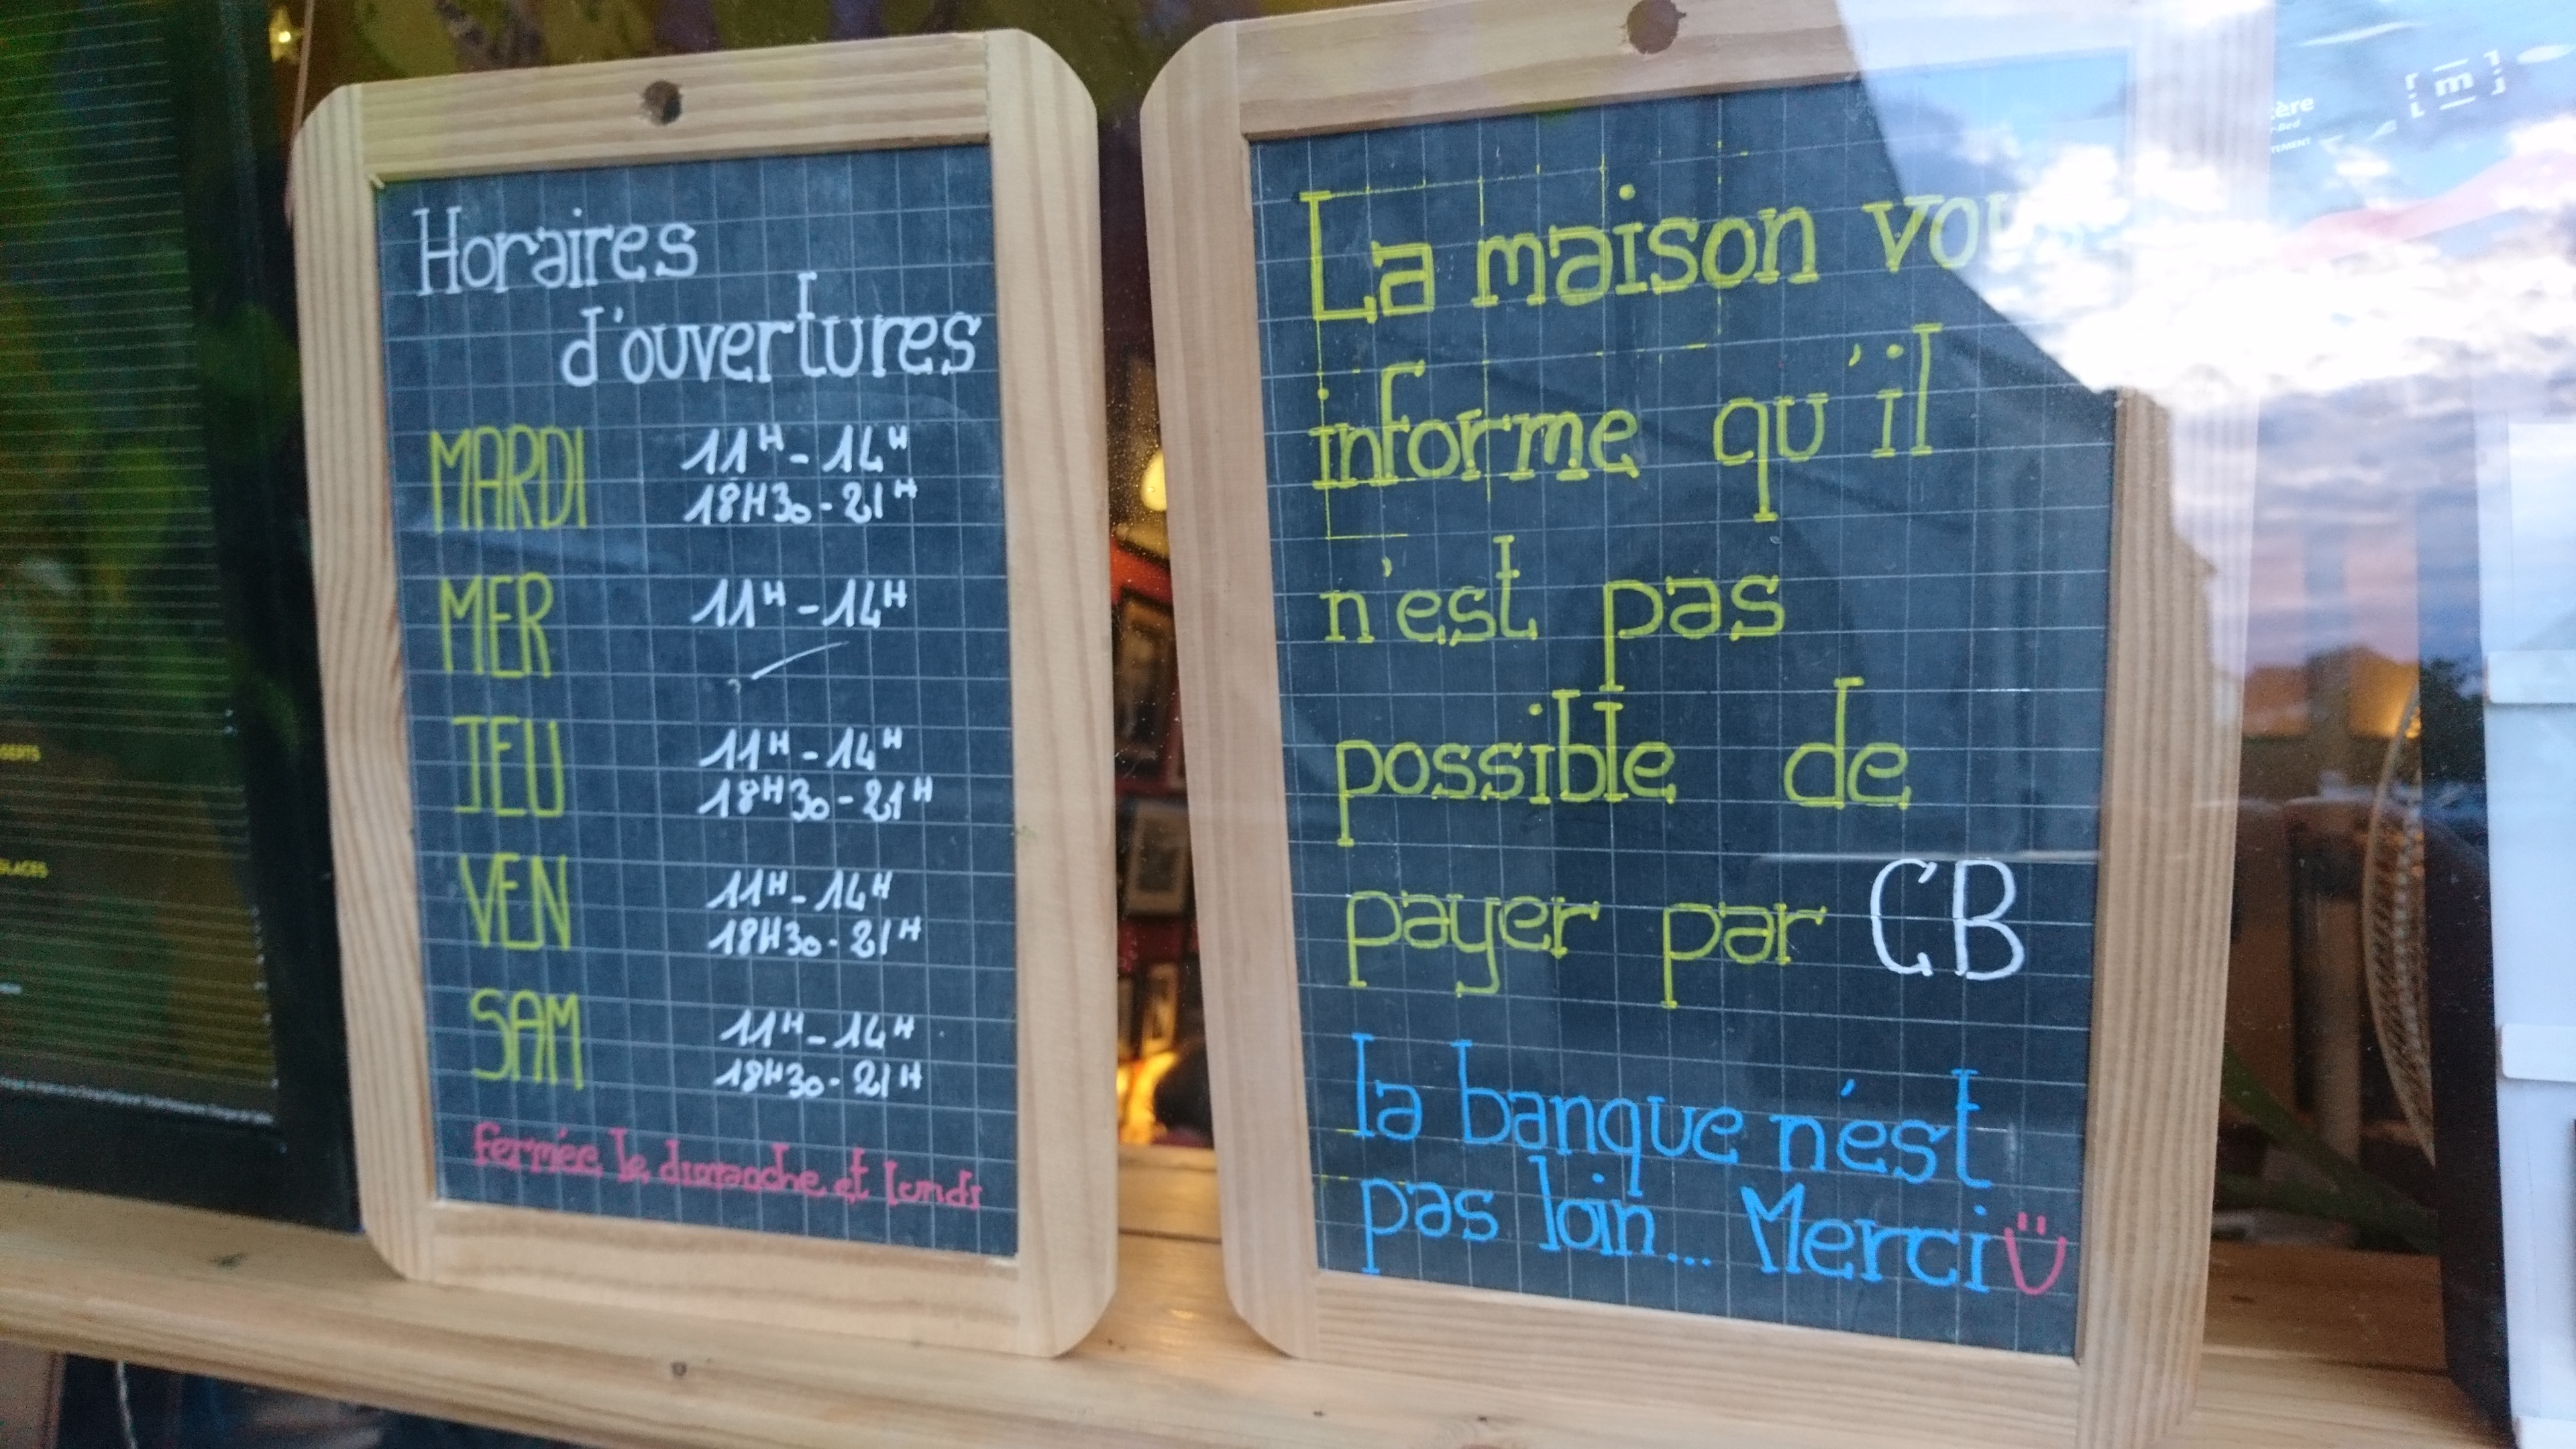 Horaires
d'ouvertures
MARDI 11H-14H
18H30-21H
MER 11H-14H
JEU 11H-14H
18H30-21H
VEN 11H-14H
18H30-21H
SAM 11H-14H
18H30-21H
fermée le dimanche et lundi
La maison vous
informe qu'il
n'est pas
possible de
payer par CB
la banque n'est
pas loin... Merci
GLACES
[m]